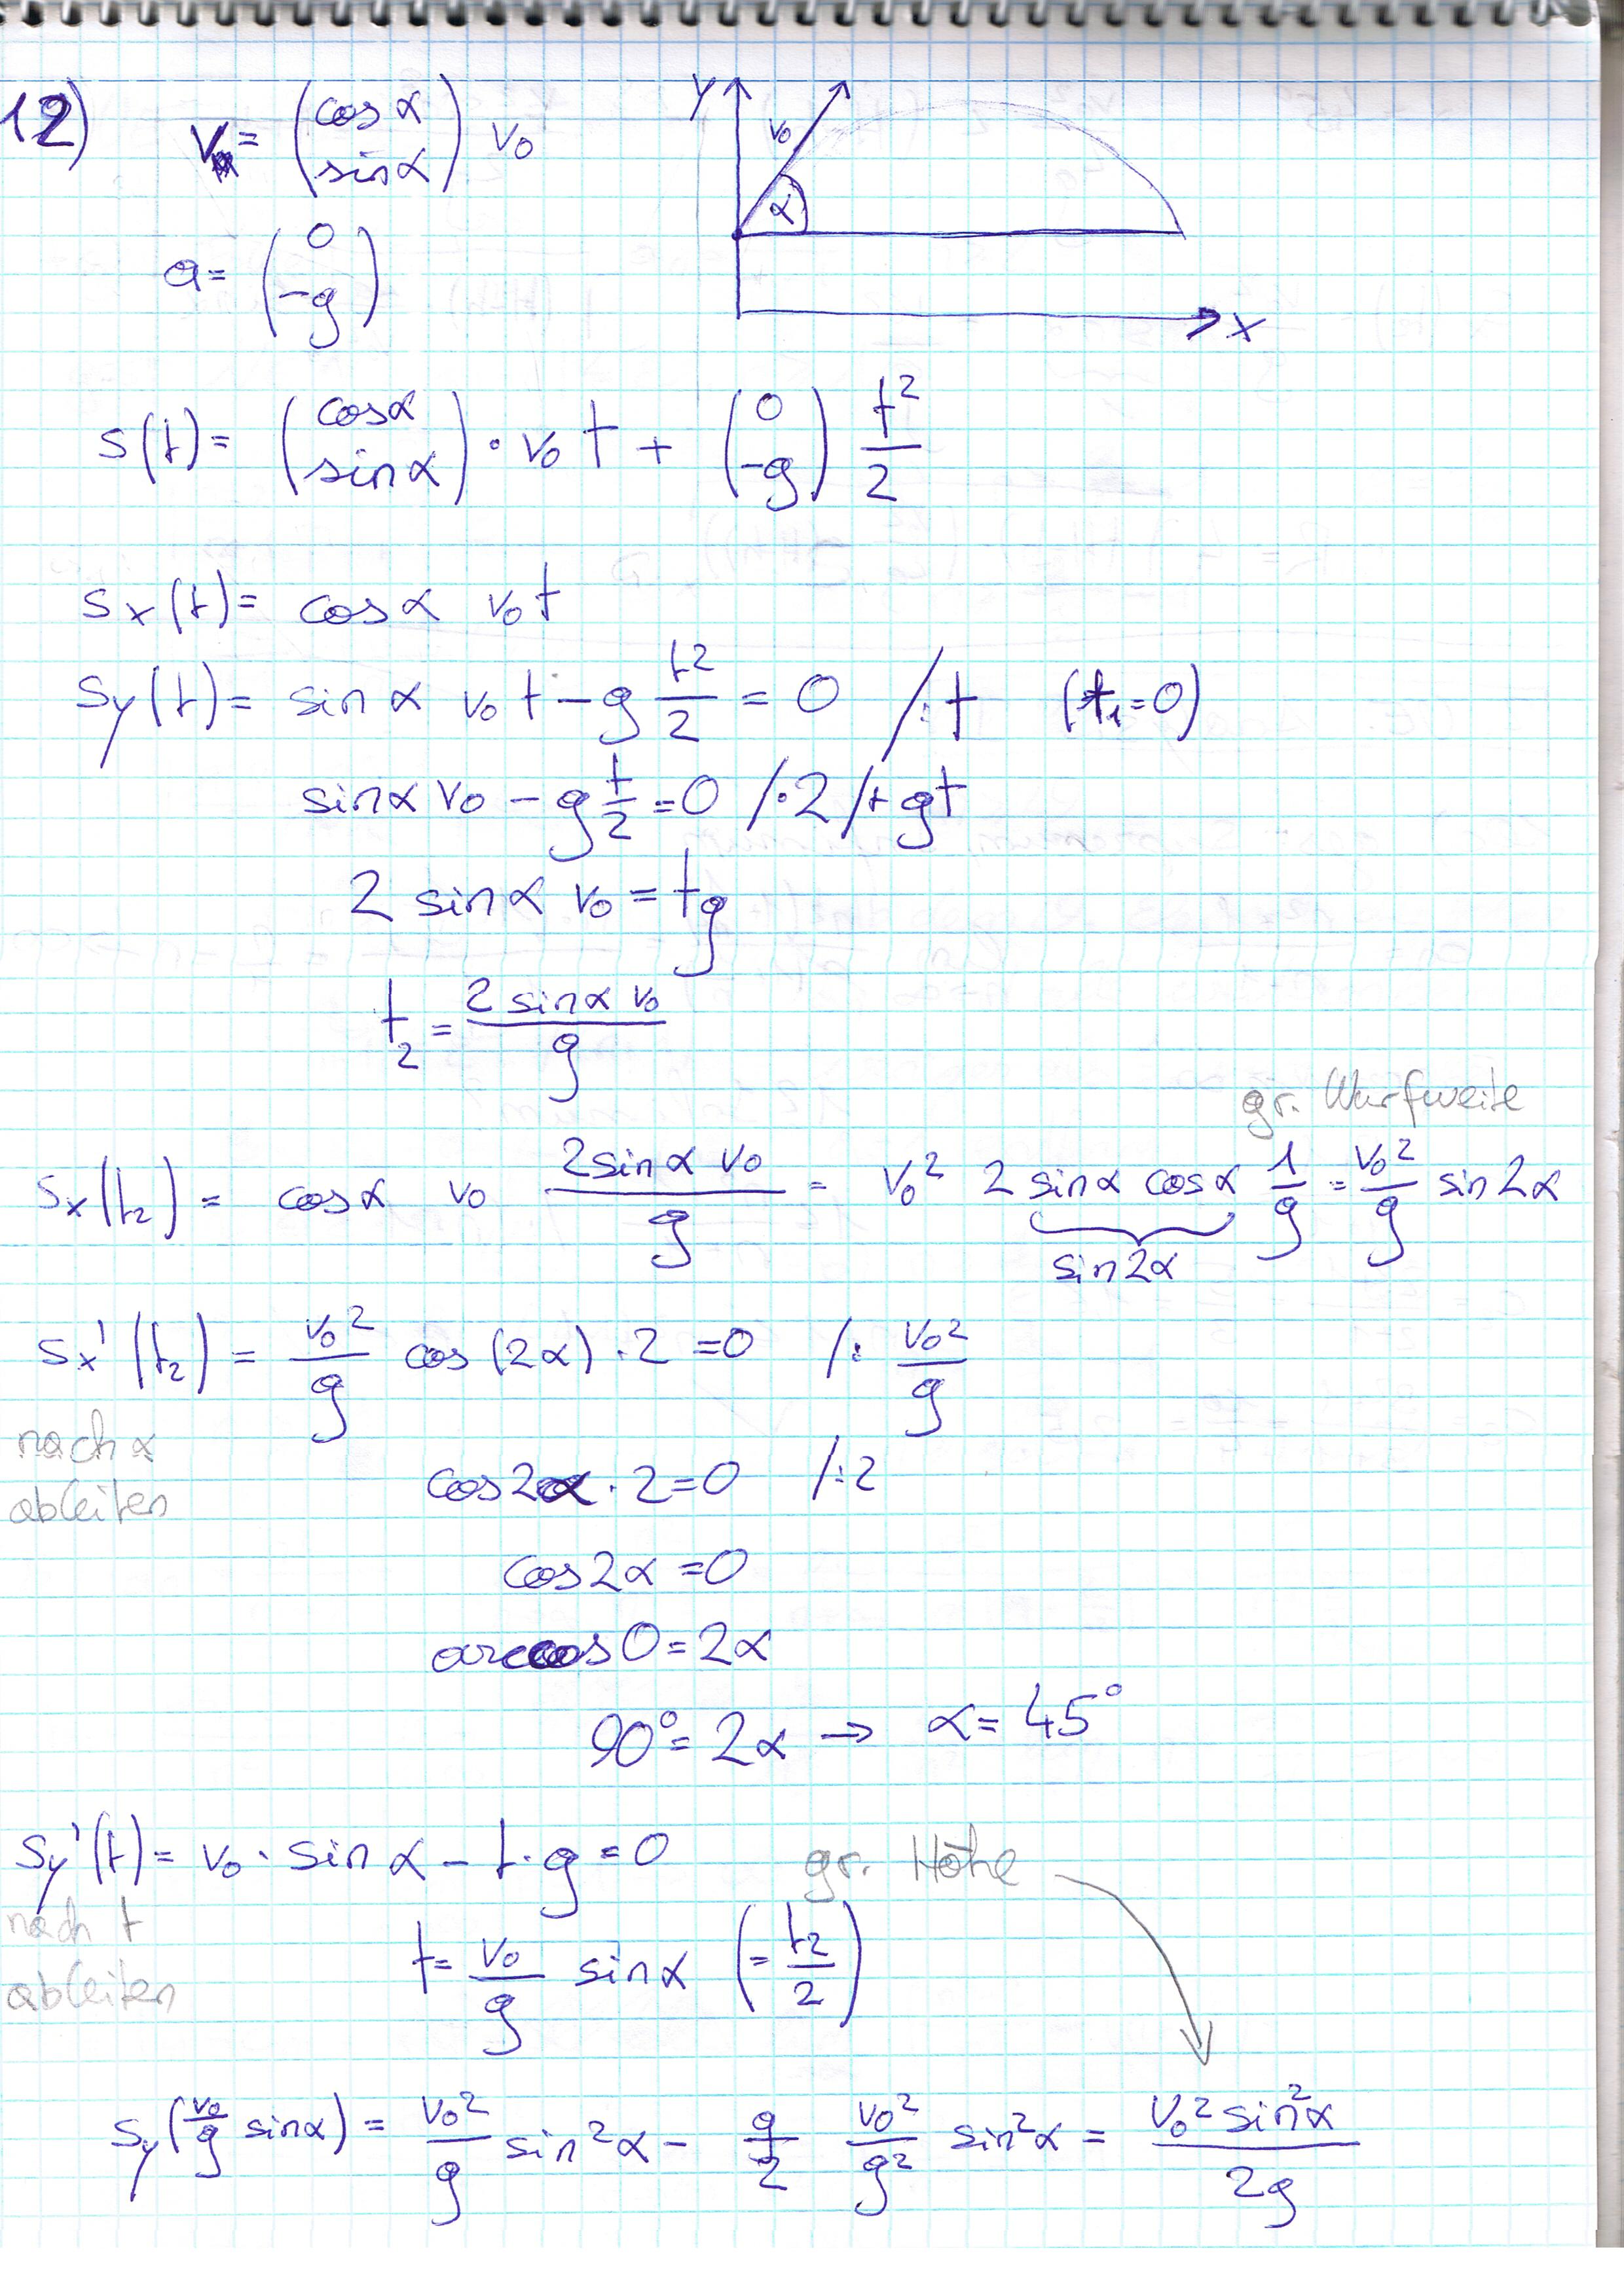 12) v = (cos α / sin α) v₀
y v₀ α x
a = (0 / -g)
s(t) = (cos α / sin α) · v₀ t + (0 / -g) t²/2
sx(t) = cos α v₀ t
sy(t) = sin α v₀ t - g t²/2 = 0 /:t (t₁=0)
sin α v₀ - g t/2 = 0 /·2 /+gt
2 sin α v₀ = tg
t₂ = 2 sin α v₀ / g
gr. Wurfweite
sx(t₂) = cos α v₀ 2 sin α v₀ / g = v₀² 2 sin α cos α 1/g = v₀²/g sin 2α
sin 2α
sx'(t₂) = v₀²/g cos(2α) · 2 = 0 /: v₀²/g
nach α
ableiten
cos 2α · 2 = 0 /:2
cos 2α = 0
arccos 0 = 2α
90° = 2α → α = 45°
sy'(t) = v₀ · sin α - t · g = 0 gr. Höhe
nach t
ableiten
t = v₀/g sin α (= t₂/2)
sy(v₀/g sin α) = v₀²/g sin²α - g/2 v₀²/g² sin²α = v₀² sin²α / 2g